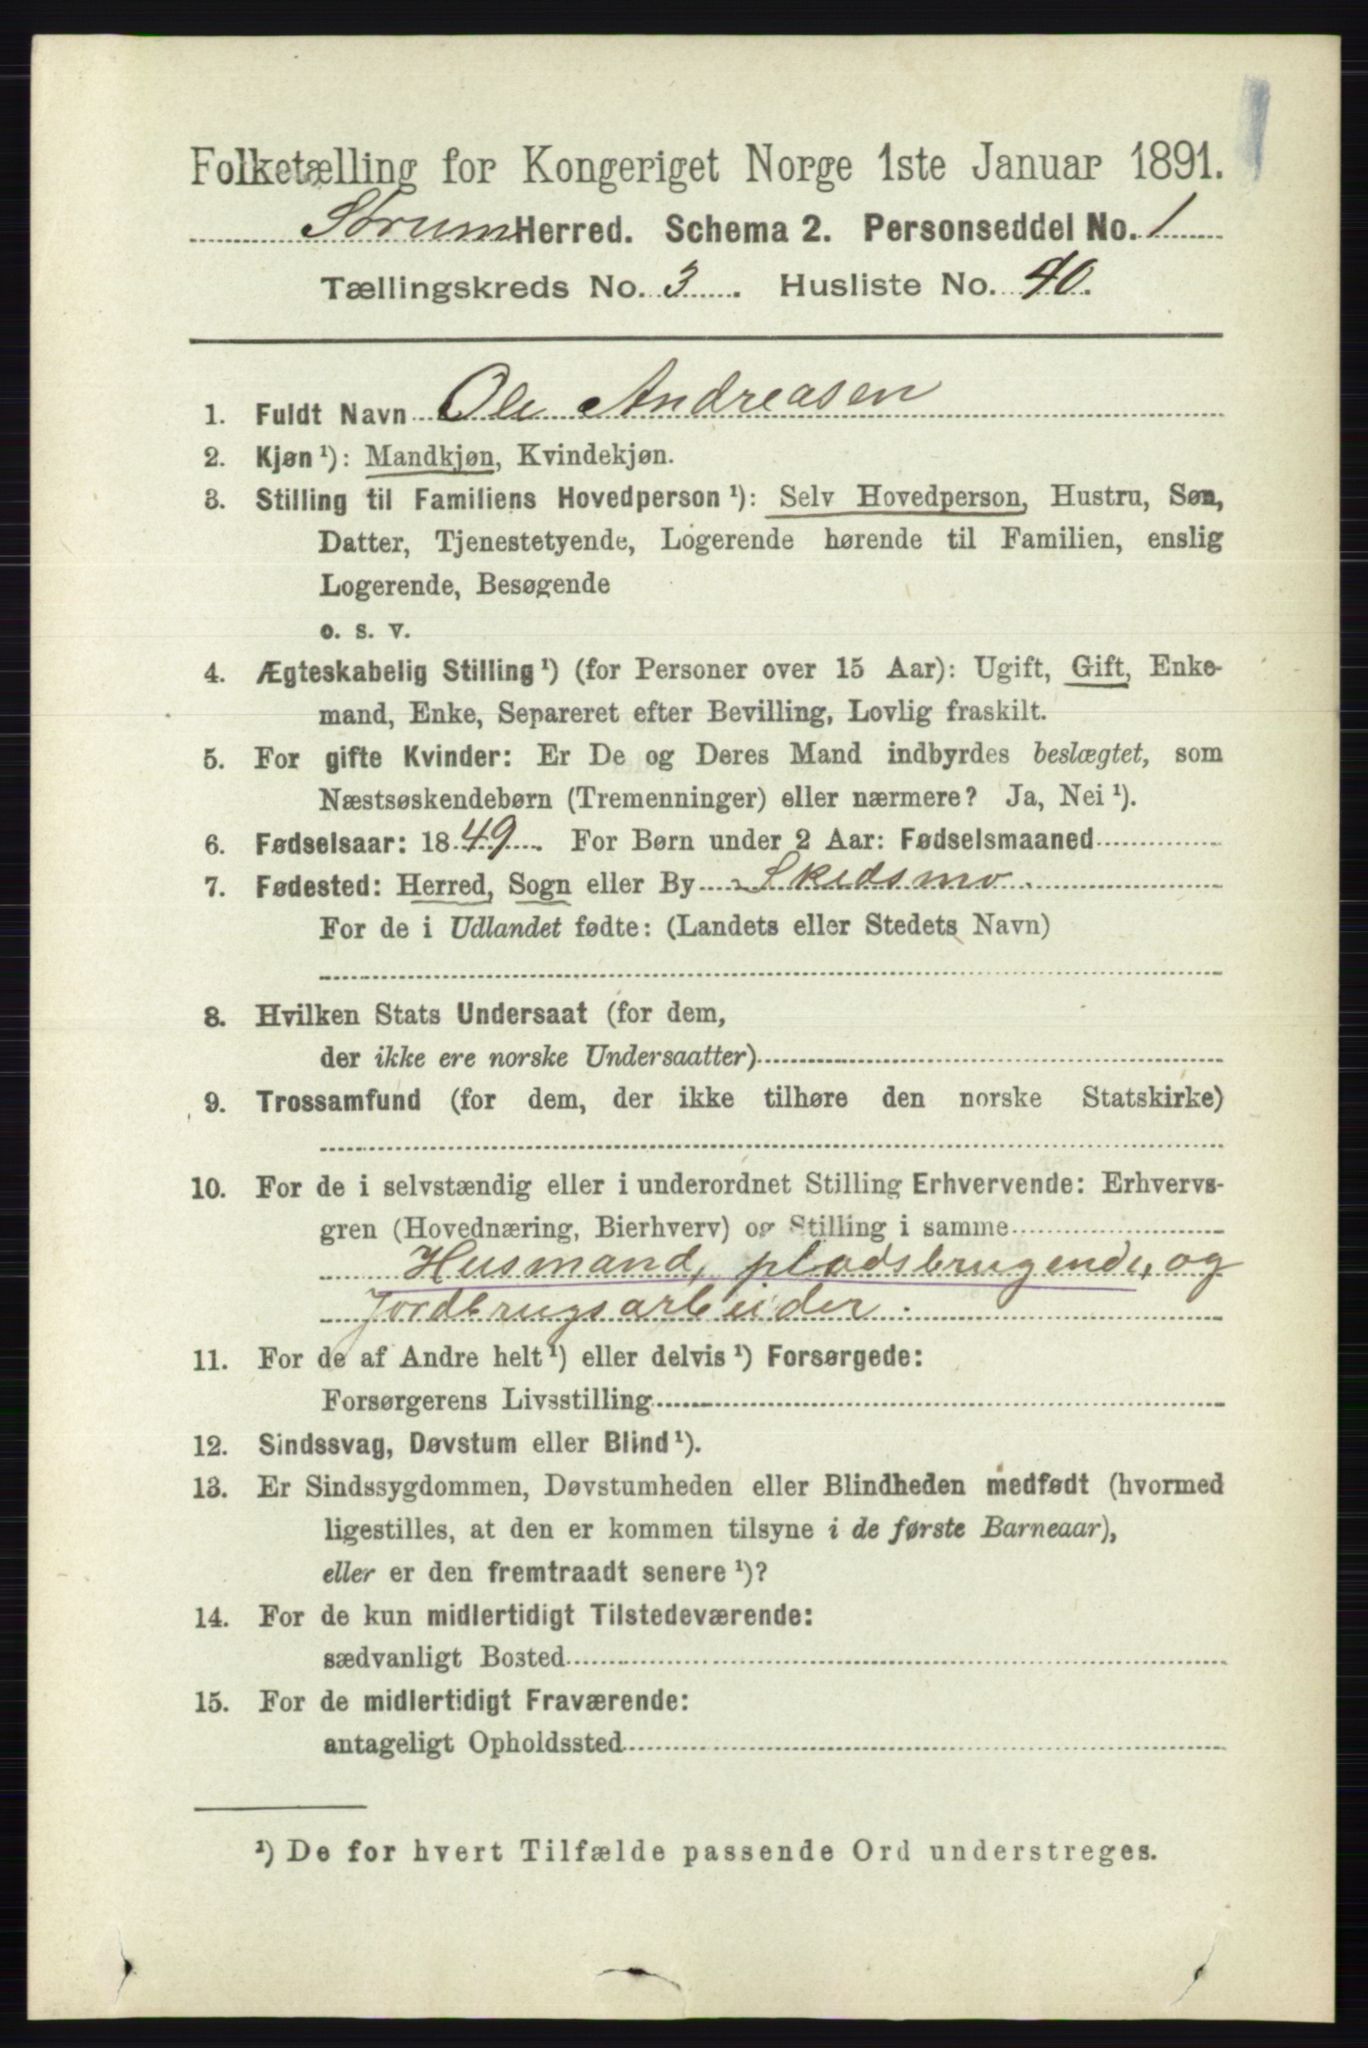 Folketælling for Kongeriget Norge 1ste Januar 1891.
Sørum Herred. Schema 2. Personseddel No. 1
Tællingskreds No. 3. Husliste No. 40.
1. Fuldt Navn Ole Andreasen
2. Kjøn ¹): Mandkjøn, Kvindekjøn.
3. Stilling til Familiens Hovedperson ¹): Selv Hovedperson, Hustru, Søn,
Datter, Tjenestetyende, Logerende hørende til Familien, enslig
Logerende, Besøgende
o. s. v.
4. Ægteskabelig Stilling ¹) (for Personer over 15 Aar): Ugift, Gift, Enke-
mand, Enke, Separeret efter Bevilling, Lovlig fraskilt.
5. For gifte Kvinder: Er De og Deres Mand indbyrdes beslægtet, som
Næstsøskendebørn (Tremenninger) eller nærmere? Ja, Nei ¹).
6. Fødselsaar: 1849. For Børn under 2 Aar: Fødselsmaaned
7. Fødested: Herred, Sogn eller By Skedsmo.
For de i Udlandet fødte: (Landets eller Stedets Navn)
8. Hvilken Stats Undersaat (for dem,
der ikke ere norske Undersaatter)
9. Trossamfund (for dem, der ikke tilhøre den norske Statskirke)
10. For de i selvstændig eller i underordnet Stilling Erhvervende: Erhvervs-
gren (Hovednæring, Bierhverv) og Stilling i samme
Husmand, pladsbrugende, og
Jordbrugsarbeider.
11. For de af Andre helt ¹) eller delvis ¹) Forsørgede:
Forsørgerens Livsstilling
12. Sindssvag, Døvstum eller Blind ¹).
13. Er Sindssygdommen, Døvstumheden eller Blindheden medfødt (hvormed
ligestilles, at den er kommen tilsyne i de første Barneaar),
eller er den fremtraadt senere ¹)?
14. For de kun midlertidigt Tilstedeværende:
sædvanligt Bosted
15. For de midlertidigt Fraværende:
antageligt Opholdssted
¹) De for hvert Tilfælde passende Ord understreges.